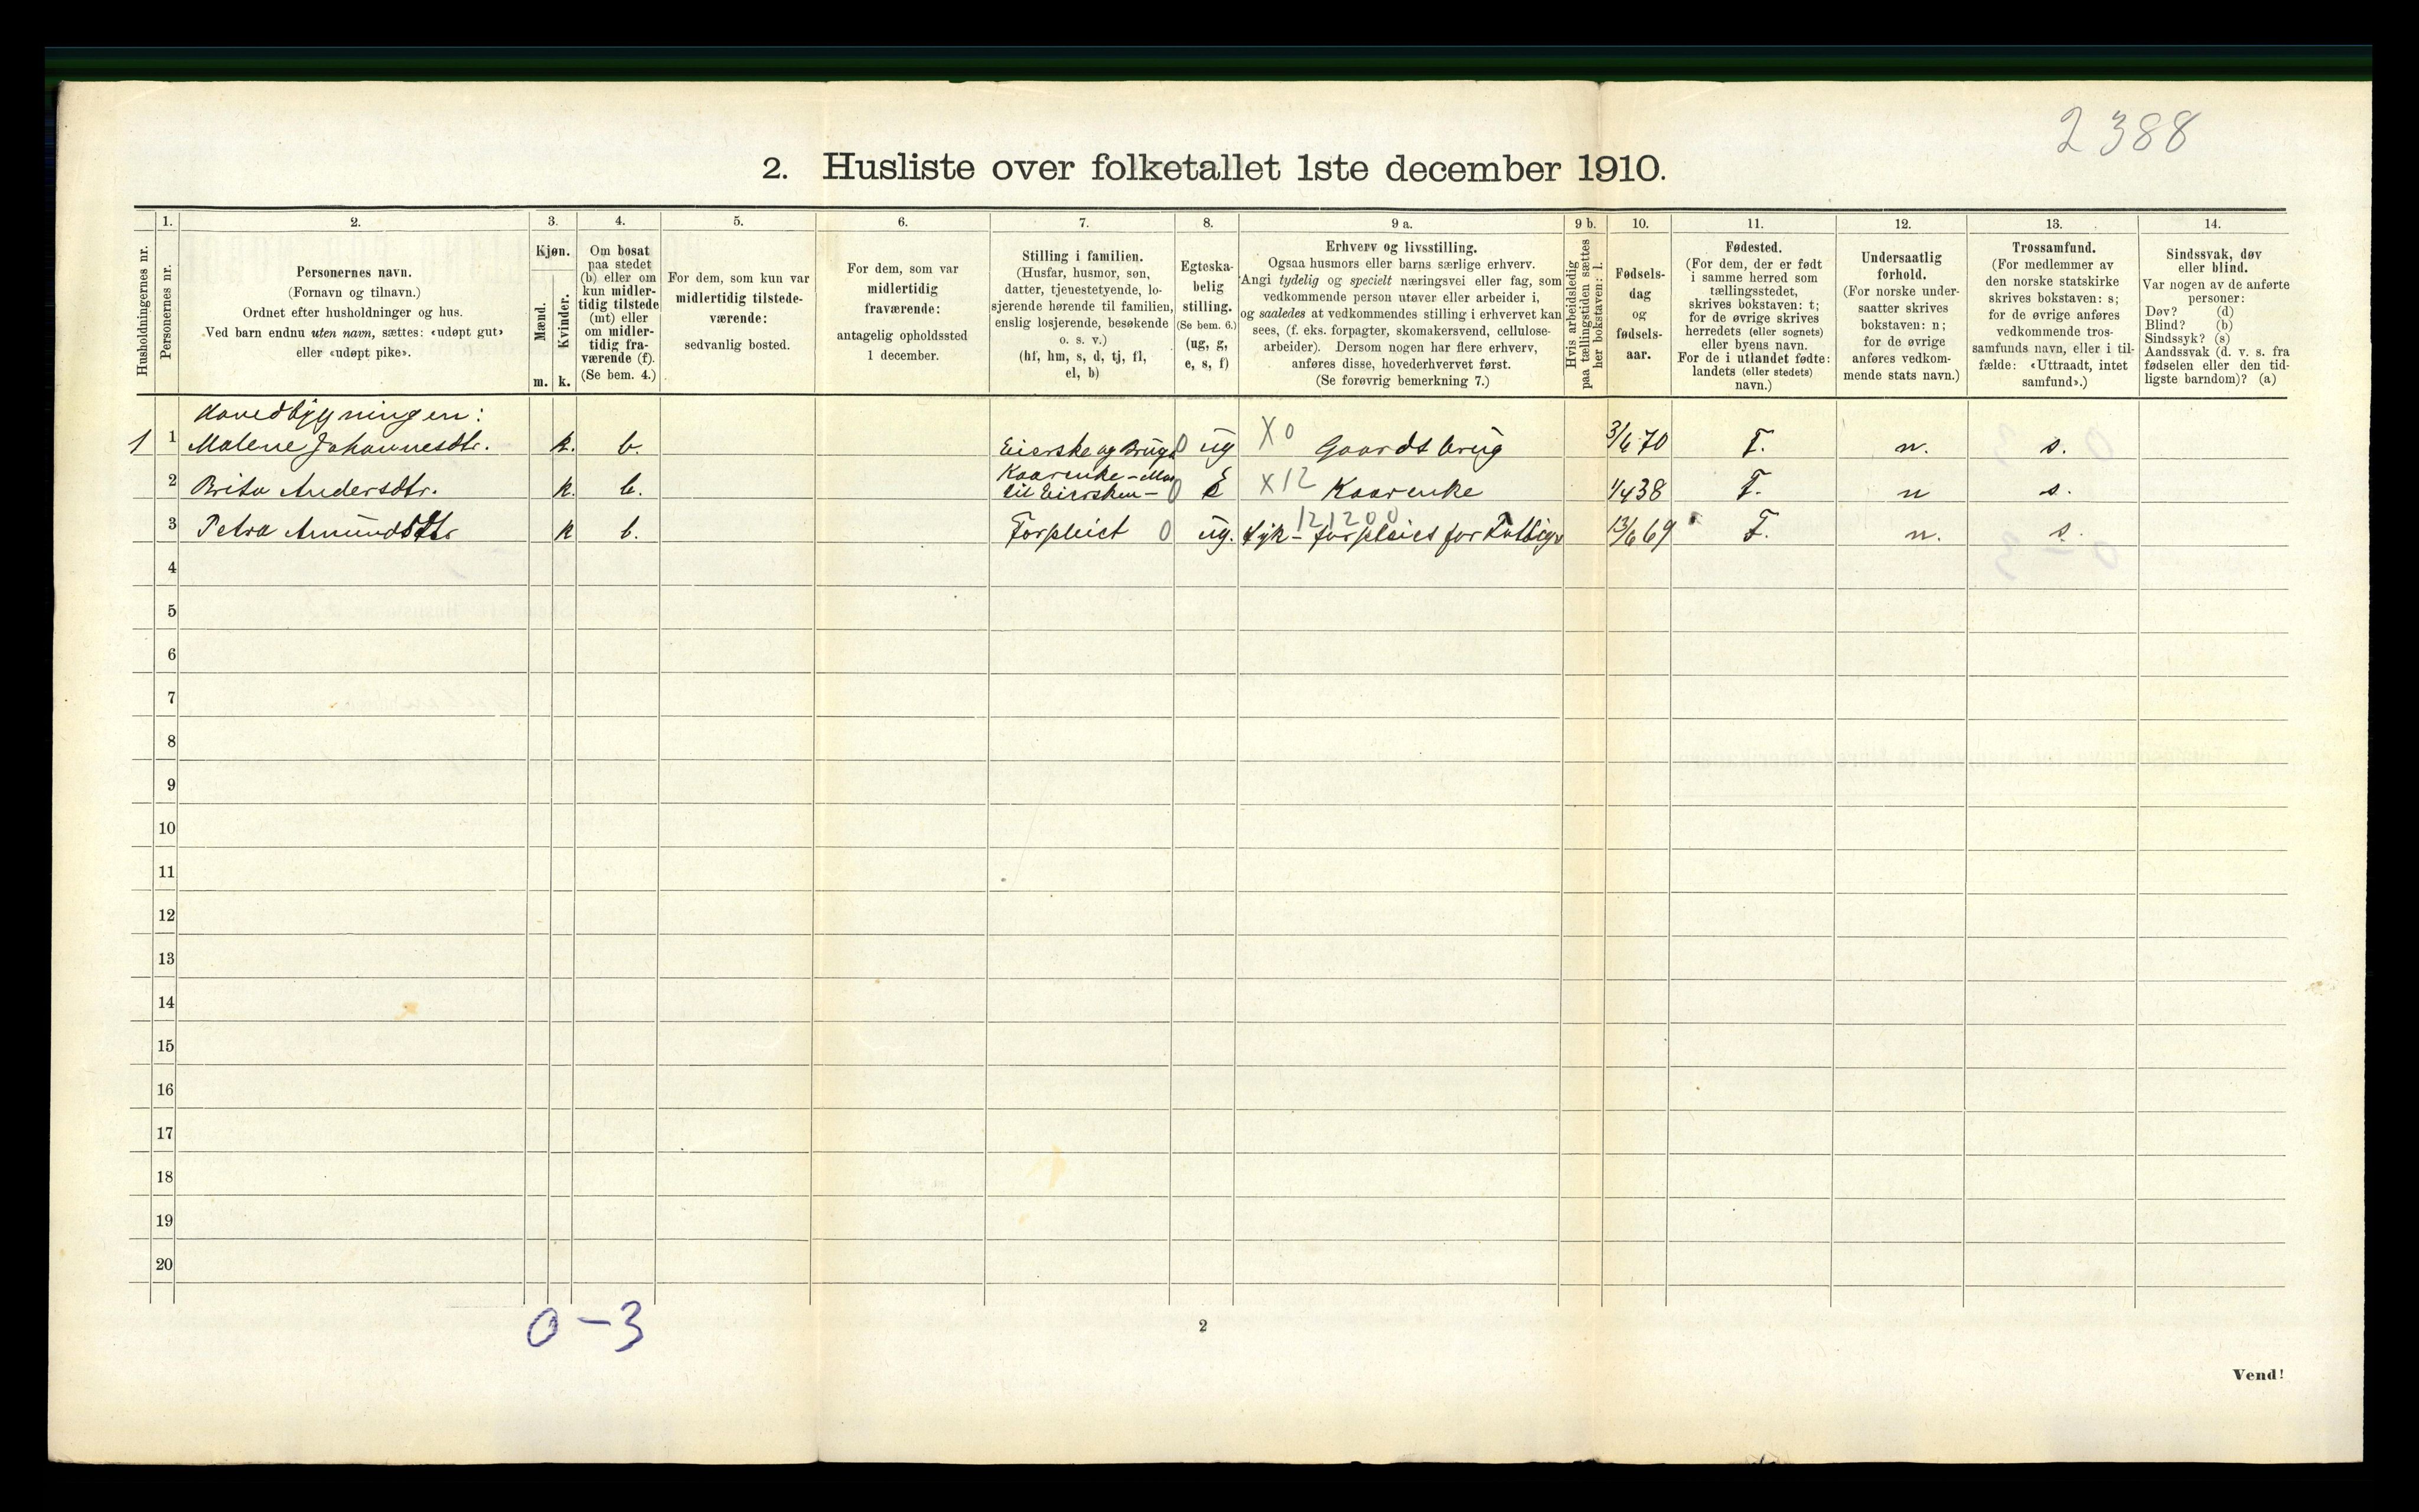 2388
2. Husliste over folketallet 1ste december 1910.
Husholdningernes nr.
1.
Personernes nr.
2.
Personernes navn.
(Fornavn og tilnavn.)
Ordnet efter husholdninger og hus.
Ved barn endnu uten navn, sættes: «udøpt gut»
eller «udøpt pike».
3.
Kjøn.
Mænd.
Kvinder.
m. k.
4.
Om bosat
paa stedet
(b) eller om
kun midler-
tidig tilstede
(mt) eller
om midler-
tidig fra-
værende (f).
(Se bem. 4.)
5.
For dem, som kun var
midlertidig tilstede-
værende:
sedvanlig bosted.
6.
For dem, som var
midlertidig
fraværende:
antagelig opholdssted
1 december.
7.
Stilling i familien.
(Husfar, husmor, søn,
datter, tjenestetyende, lo-
sjerende hørende til familien,
enslig losjerende, besøkende
o. s. v.)
(hf, hm, s, d, tj, fl,
el, b)
8.
Egteska-
belig
stilling.
(Se bem. 6.)
(ug, g,
e, s, f)
9 a.
Erhverv og livsstilling.
Ogsaa husmors eller barns særlige erhverv.
Angi tydelig og specielt næringsvei eller fag, som
vedkommende person utøver eller arbeider i,
og saaledes at vedkommendes stilling i erhvervet kan
sees, (f. eks. forpagter, skomakersvend, cellulose-
arbeider). Dersom nogen har flere erhverv,
anføres disse, hovederhvervet først.
(Se forøvrig bemerkning 7.)
9 b.
Hvis arbeidsledig
paa tællingstiden sættes
her bokstaven: l.
10.
Fødsels-
dag
og
fødsels-
aar.
11.
Fødested.
(For dem, der er født
i samme herred som
tællingsstedet,
skrives bokstaven: t;
for de øvrige skrives
herredets (eller sognets)
eller byens navn.
For de i utlandet fødte:
landets (eller stedets)
navn.)
12.
Undersaatlig
forhold.
(For norske under-
saatter skrives
bokstaven: n;
for de øvrige
anføres vedkom-
mende stats navn.)
13.
Trossamfund.
(For medlemmer av
den norske statskirke
skrives bokstaven: s;
for de øvrige anføres
vedkommende tros-
samfunds navn, eller i til-
fælde: «Uttraadt, intet
samfund».)
14.
Sindssvak, døv
eller blind.
Var nogen av de anførte
personer:
Døv? (d)
Blind? (b)
Sindssyk? (s)
Aandssvak (d. v. s. fra
fødselen eller den tid-
ligste barndom)? (a)
Hovedbygningen:
1 1 Malene Johannesdtr. k. b. Eierske og Brug 0 ug X0 Gaardsbrug 3/6 70 T. n. s.
2 Brita Andersdtr. k. b. Kaarenke - Mor til Eiersken - 0 E X12 Kaarenke 1/4 38 T. n s.
3 Petra Amundsdtr k b. Forpleiet 0 ug. 121200 Syk - forpleies for 13/6 69 T. n. s.
4
5
6
7
8
9
10
11
12
13
14
15
16
17
18
19
20
0-3
2
Vend!